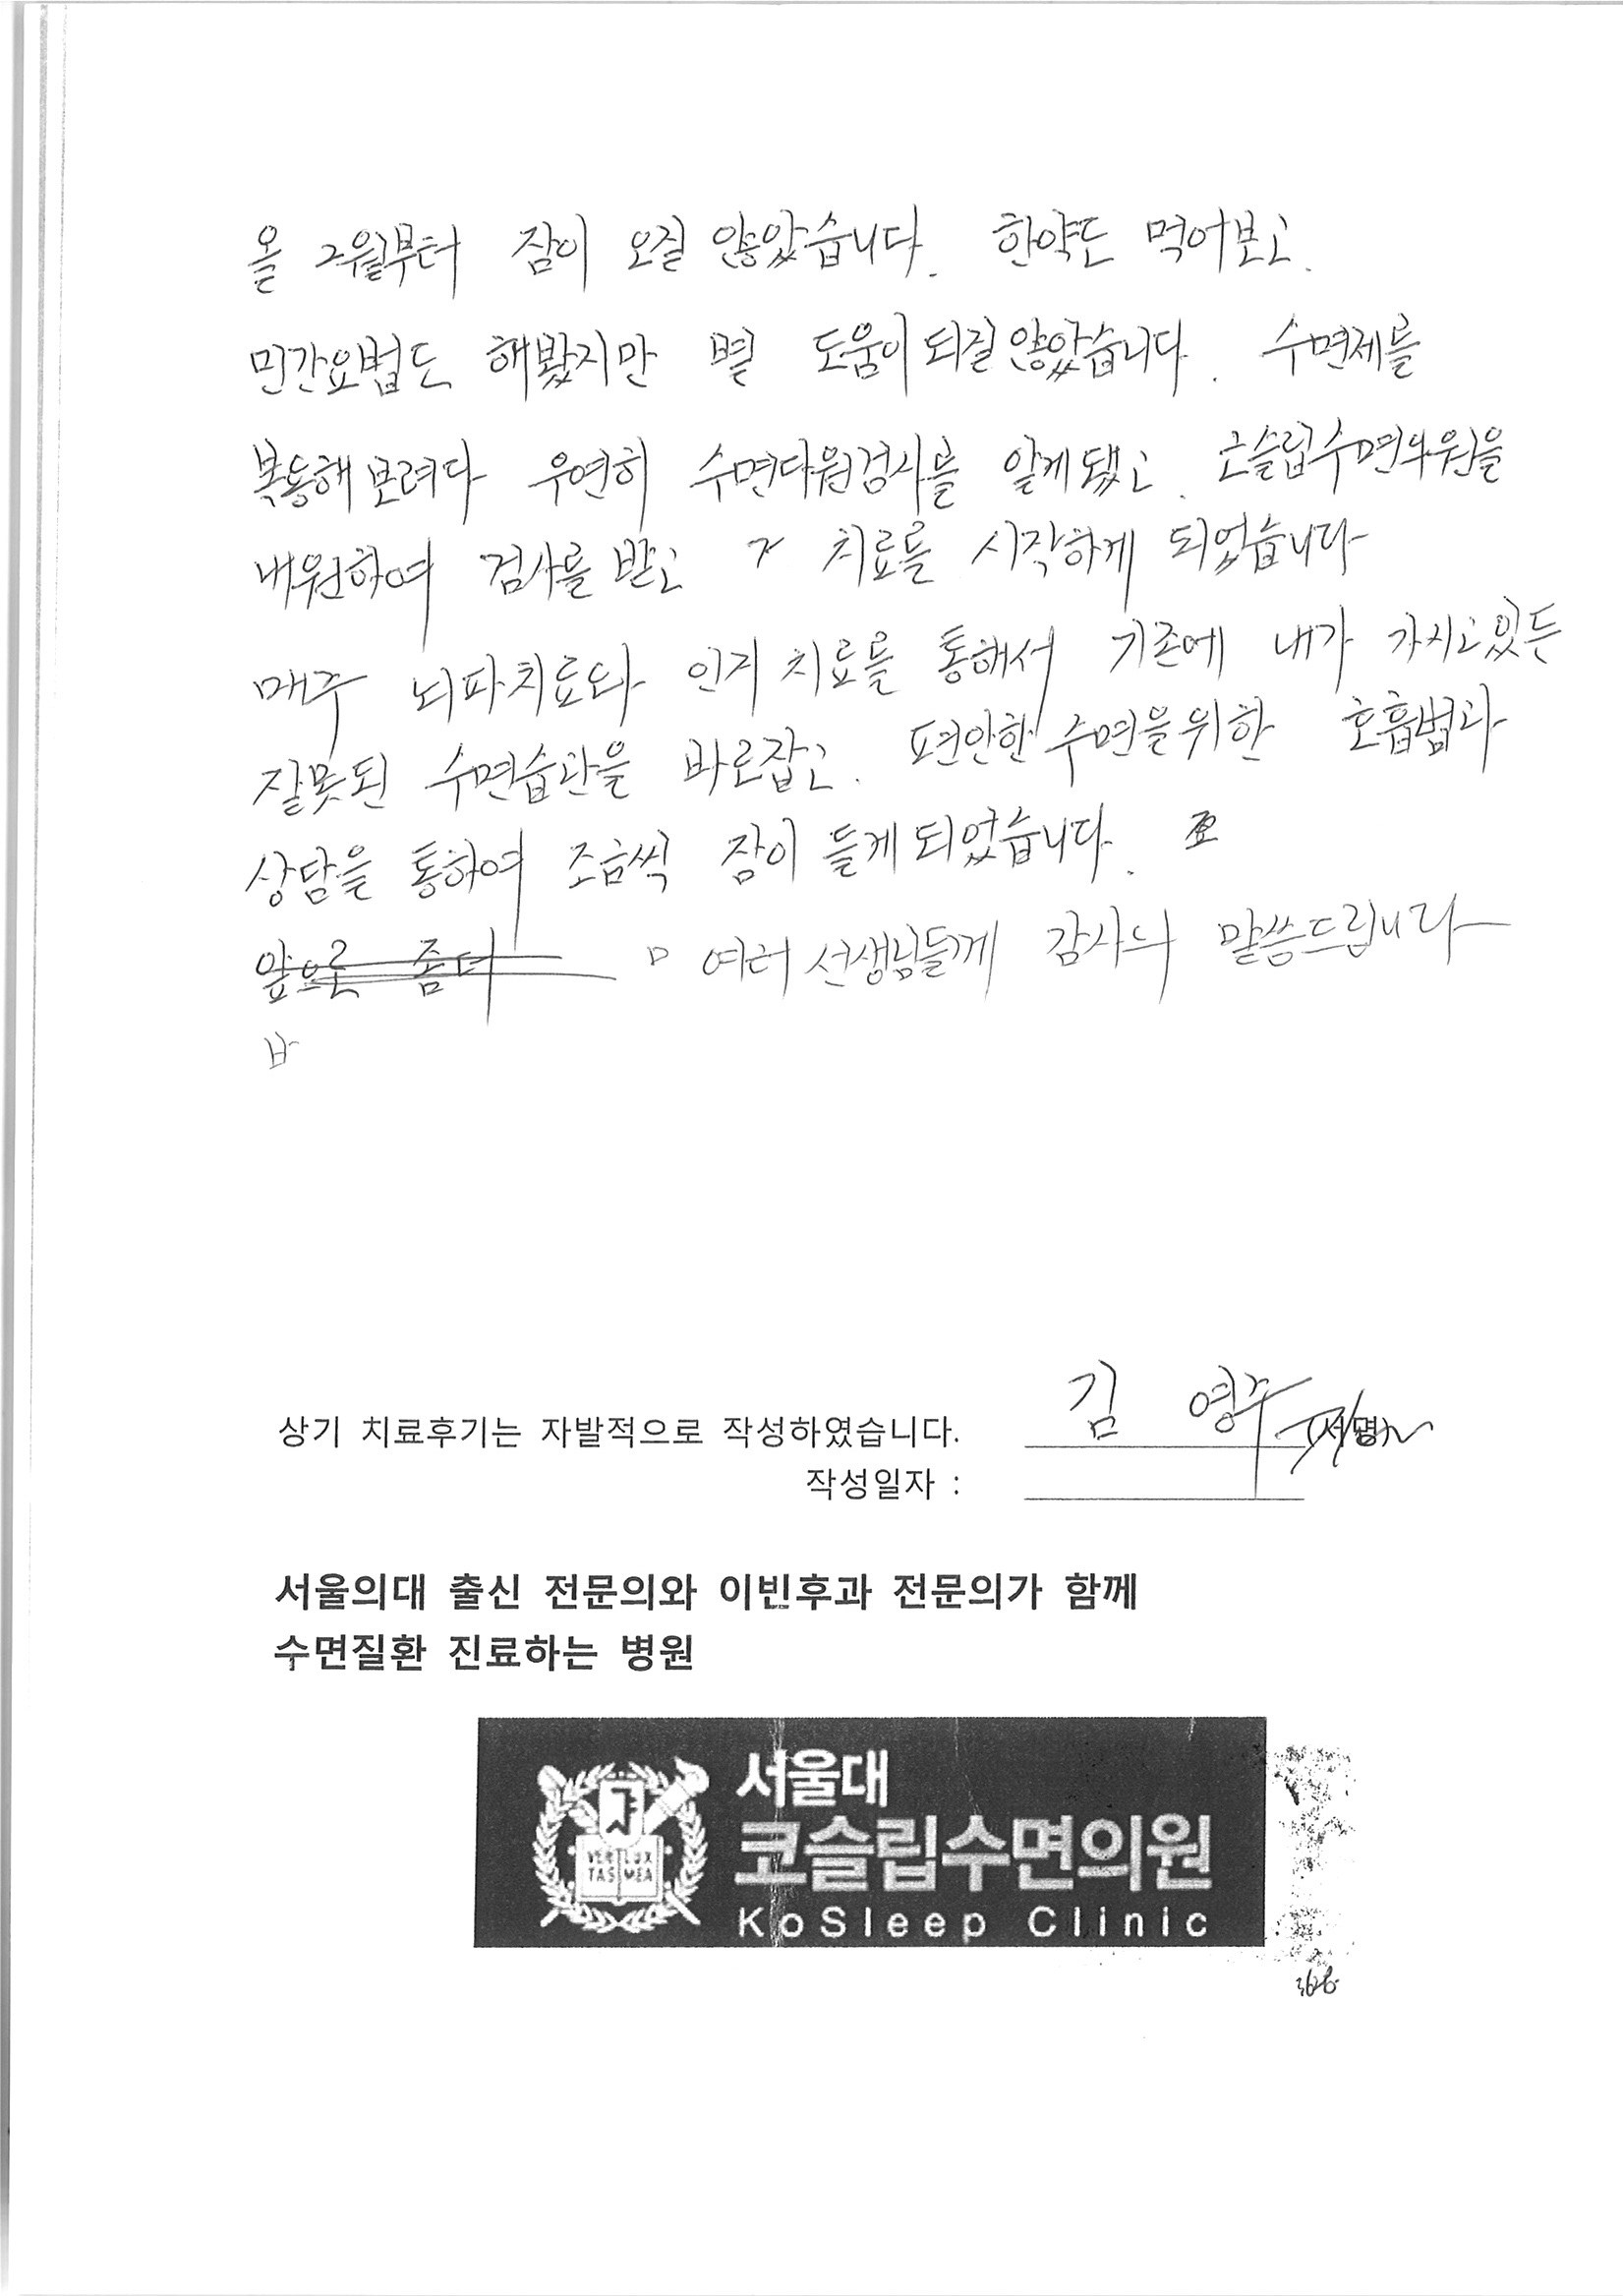 올 2월부터 잠이 오질 않았습니다. 한약도 먹어보고.
민간요법도 해봤지만 별 도움이 되질 않았습니다. 수면제를
복용해 보려다 우연히 수면다원검사를 알게됐고. 코슬립수면의원을
내원하여 검사를 받고 치료를 시작하게 되었습니다
매주 뇌파치료와 인지 치료를 통해서 기존에 내가 가지고있든
잘못된 수면습관을 바로잡고. 편안한 수면을위한 호흡법과
상담을 통하여 조금씩 잠이 들게되었습니다.
앞으로 좀더 여러 선생님들께 감사의 말씀드립니다
바
김 영주
상기 치료후기는 자발적으로 작성하였습니다. (서명)
작성일자 :
서울의대 출신 전문의와 이빈후과 전문의가 함께
수면질환 진료하는 병원
서울대
코슬립수면의원
VERI LUX
TAS MEA
KoSleep Clinic